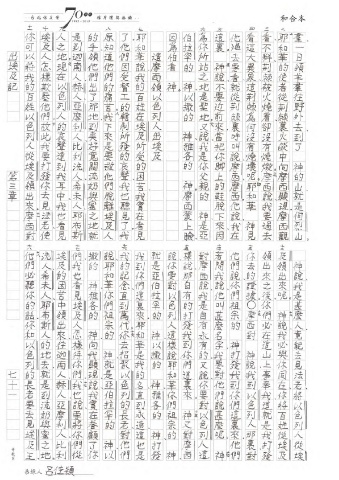 和合本
70
羣一日領羊羣往野外去到了 神的山就是何烈山
耶和華的使者從荊棘裏火焰中向摩西顯現摩西觀
看不料荊棘被火燒着卻沒有燒燬摩西說我要過去
看這大異象這荊棘為何沒有燒壞呢耶和華 神見
他過去要看就從荊棘裏呼叫說摩西摩西他說我在
這裏 神說不要近前來當把你腳上的鞋脫下來因
為你所站之地是聖地又說我是你父親的 神是亞
伯拉罕的 神以撒的 神雅各的 神摩西蒙上臉
因為怕看 神
遣摩西領以色列人出埃及
耶和華說我的百姓在埃及所受的困苦我實在看見
了他們因受督工的轄制所發的哀聲我也聽見了我
原知道他們的痛苦我下來是要救他們脫離埃及人
的手領他們出了那地到美好寬闊流奶與蜜之地就
是到迦南人赫人亞摩利人比利洗人希未人耶布斯
人之地現在以色列人的哀聲達到我耳中我也看見
埃及人怎樣欺壓他們故此我要打發你去見法老使
你可以將我的百姓以色列人從埃及領出來摩西對
神說我是甚麼人竟能去見法老將以色列人從埃
及領出來呢 神說我必與你同在你將百姓從埃及
領出來之後你們必在這山上事奉我這就是我打發
你去的證據摩西對 神說我到以色列人那裏對
他們說你們祖宗的 神打發我到你們這裏來他們
若問我說他叫甚麼名字我要對他們說甚麼呢 神
對摩西說我是自有永有的又說你要對以色列人這
樣說那自有的打發我到你們這裏來 神又對摩西
說你要對以色列人這樣說耶和華你們祖宗的 神
就是亞伯拉罕的 神以撒的 神雅各的 神打發
我到你們這裏來耶和華是我的名直到永遠這也是
我的紀念直到萬代你去招聚以色列的長老對他們
說耶和華你們祖宗的 神就是亞伯拉罕的 神以
撒的 神雅各的 神向我顯現說我實在眷顧了你
們我也看見埃及人怎樣待你們我也說要將你們從
埃及的困苦中領出來往迦南人赫人亞摩利人比利
洗人希未人耶布斯人的地去就是到流奶與蜜之地
他們必聽你的話你和以色列的長老要去見埃及王
出埃及記
第三章